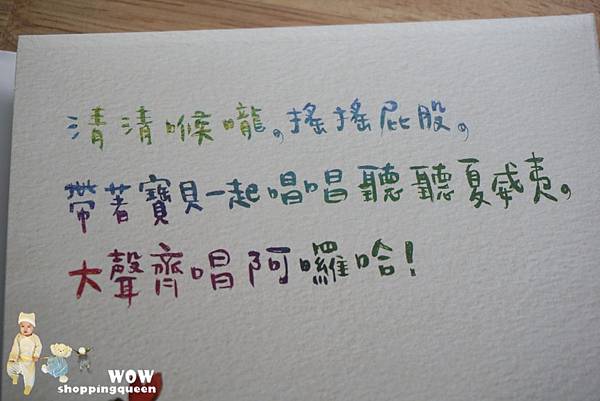 清清喉嚨。搖搖屁股。
帶著寶貝一起唱唱聽聽夏威夷。
大聲齊唱阿囉哈!
WOW
shoppingqueen